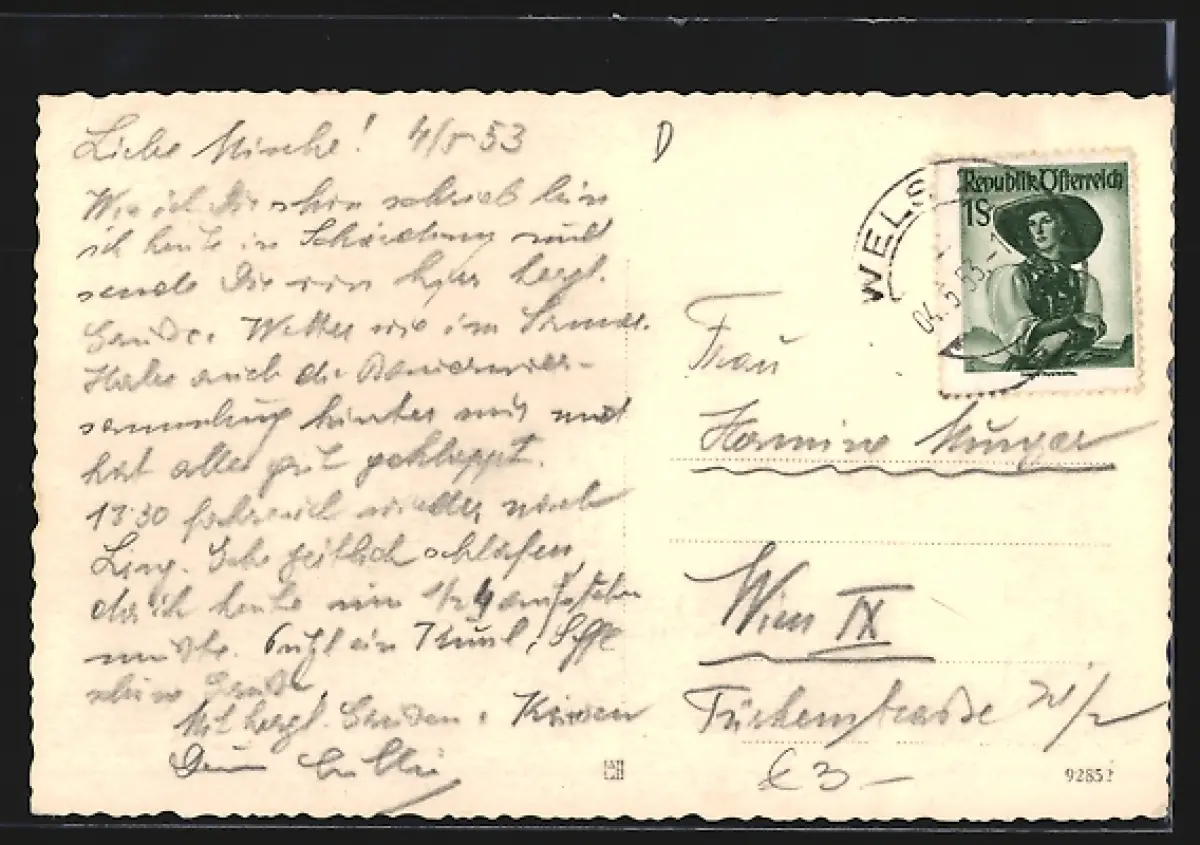 Liebe Mischa! 4/5 53
Wie ich Dir schon schrieb bin
ich heute in Schärding und
sende Dir von hier herzl.
Grüße. Wetter wie im Sommer.
Habe auch die Bauernver-
sammlung hinter mir und
hat alles gut geklappt.
13:30 fahre ich wieder nach
Linz. Gehe zeitlich schlafen
da ich heute um 1/2 4 aufstehen
mußte.
schöne Grüße
Mit herzl. Grüßen u. Küssen
Dein
D
Republik Österreich
1S
WELS
04.5.53-1
Frau
Hermine
Wien IX
Türkenstrasse
€3-
9285?